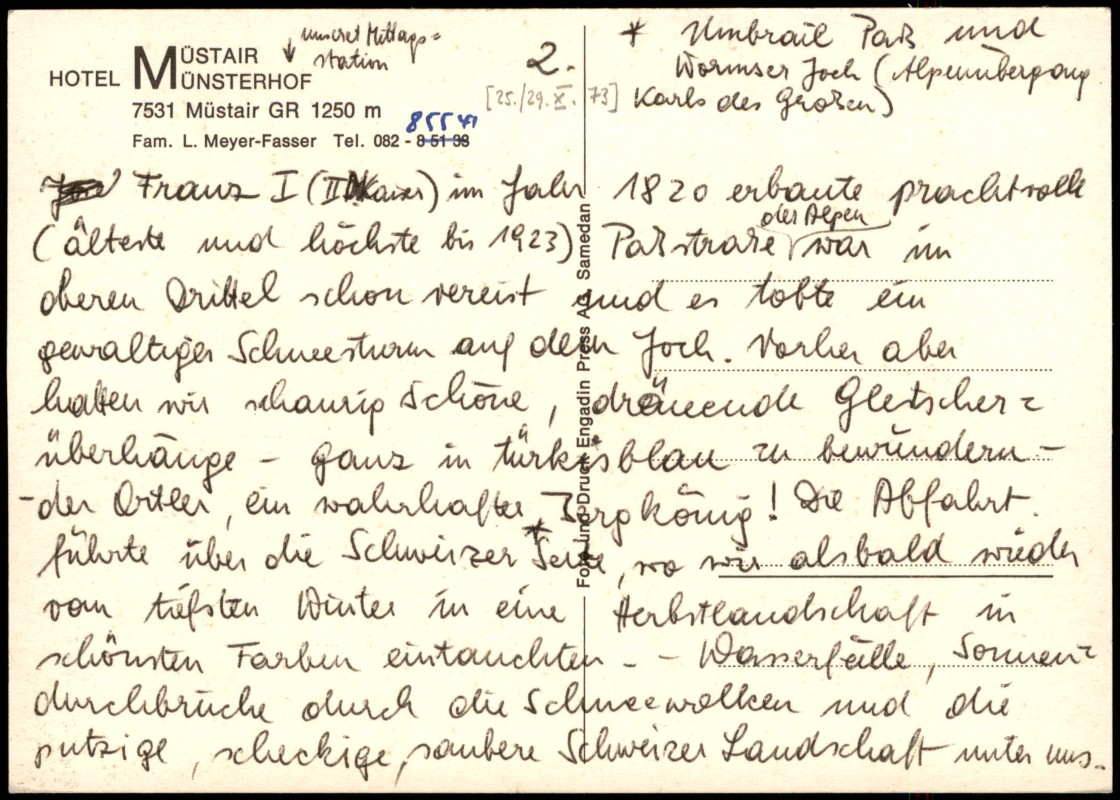 unsret Mittags=
station
HOTEL MÜSTAIR
MÜNSTERHOF
7531 Müstair GR 1250 m
Fam. L. Meyer-Fasser Tel. 082 - 8 51 38
855 41
2.
[25./29. X. 73]
* Umbrail Paß und
Wormser Joch (Alpenübergang
Karls des Großen)
Franz I (II Kaiser) im Jahr 1820 erbaute prachtvolle
(älteste und höchste bis 1923) Paßstraße der Alpen war im
oberen Drittel schon vereist und es tobte ein
gewaltiger Schneesturm auf dem Joch. Vorher aber
hatten wir schaurig schöne, dräuende Gletscher=
überhänge - ganz in türkisblau zu bewundern -
- der Ortler, ein wahrhafter Bergkönig! Die Abfahrt
führte über die Schweizer * Seite, wo wir alsbald wieder
vom tiefsten Winter in eine Herbstlandschaft in
schönsten Farben eintauchten - - Wasserfälle, Sonnen=
durchbrüche durch die Schneewolken und die
putzige, scheckige, saubere Schweizer Landschaft unter uns.
Foto und Druck Engadin Press AG, Samedan